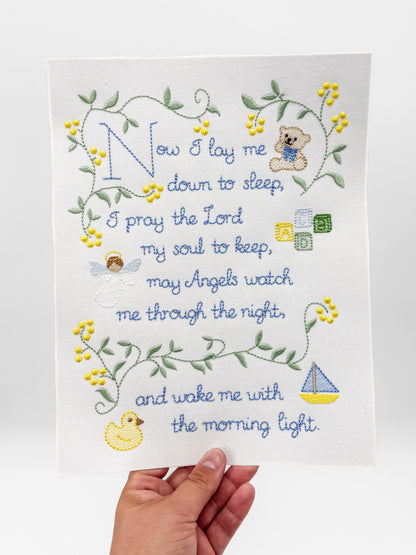 Now I lay me
down to sleep,
I pray the Lord
my soul to keep,
may Angels watch
me through the night,
and wake me with
the morning light.